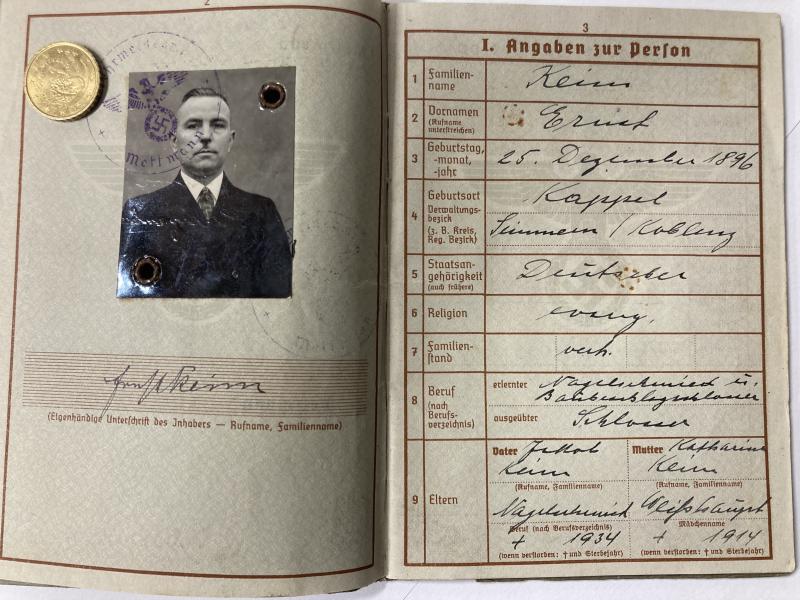 2
Mettmann
(Eigenhändige Unterschrift des Inhabers — Rufname, Familienname)
3
I. Angaben zur Person
1 Familien-
name
Keim
2 Vornamen
(Rufname
unterstreichen)
Ernst
3 Geburtstag,
-monat,
-jahr
25. Dezember 1896
4 Geburtsort
Verwaltungs-
bezirk
(z. B. Kreis,
Reg. Bezirk)
Kappel
Simmern / Koblenz
5 Staatsan-
gehörigkeit
(auch frühere)
Deutscher
6 Religion
evang.
7 Familien-
stand
verh.
8 Beruf
(nach
Berufs-
verzeichnis)
erlernter Nagelschmied u.
Baubeschlagschlosser
ausgeübter Schlosser
9 Eltern
Vater Jakob
Keim
(Rufname, Familienname)
Nagelschmied
Beruf (nach Berufsverzeichnis)
+ 1934
(wenn verstorben: † und Sterbejahr)
Mutter Katharina
Keim
(Rufname, Familienname)
Weißhaupt
Mädchenname
+ 1914
(wenn verstorben: † und Sterbejahr)